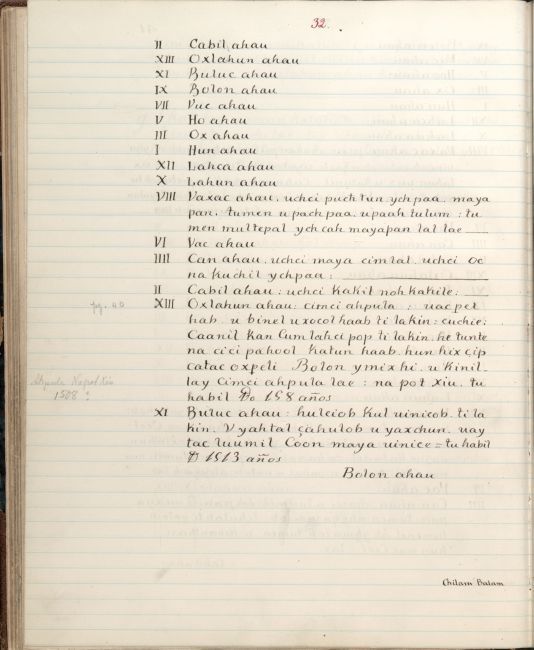 32.
II Cabil ahau
XIII Oxlahun ahau
XI Buluc ahau
IX Bolon ahau
VII Vuc ahau
V Ho ahau
III Ox ahau
I Hun ahau
XII Lahca ahau
X Lahun ahau
VIII Vaxac ahau. uchci puch tun ych paa. maya
pan. tumen u pach paa. u paah tulum : tu
men multepal ych cah mayapan lal lae
VI Vac ahau
IIII Can ahau. uchci maya cimlal. uchci oc
na kuchil ych paa :
II Cabil ahau : uchci kakil noh kakile :
XIII Oxlahun ahau : cimci ahpula : uac pel
hab u binel u xocol haab ti lakin : cuchie :
Caanil kan Cumlahci pop ti lakin. he tun te
na cici pahool katun haab. hun hix çip
catac oxpeli Bolon ymix hi. u kinil.
lay Cimci ahpula lae : na pot xiu. tu
habil Do 158 años
XI Buluc ahau : hulciob kul uinicob. ti la
kin. V yahtal çahulob u yaxchun. uay
tac luumil Coon maya uinice = tu habil
D 1513 años
Bolon ahau
pg. 40
Ahpula Napot Xiu
1508 ?
Chilam Balam